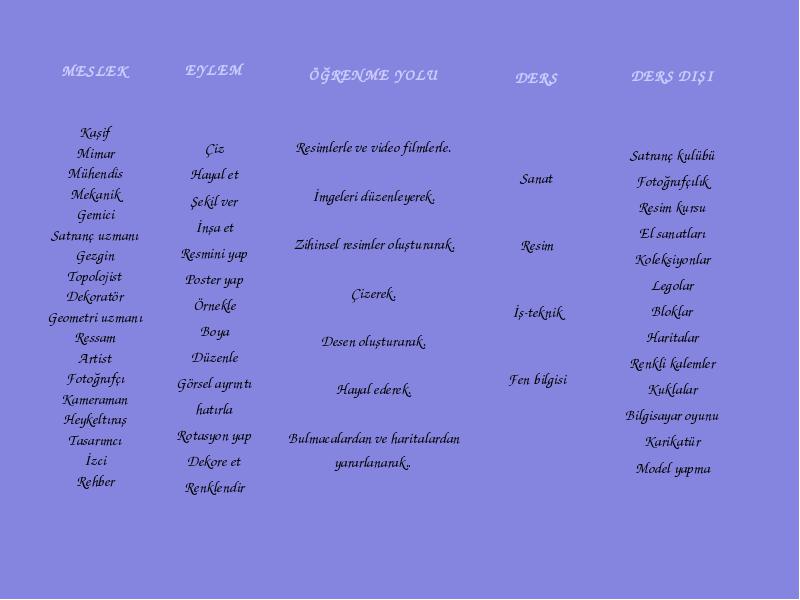 MESLEK
Kaşif
Mimar
Mühendis
Mekanik
Gemici
Satranç uzmanı
Gezgin
Topolojist
Dekoratör
Geometri uzmanı
Ressam
Artist
Fotoğrafçı
Kameraman
Heykeltıraş
Tasarımcı
İzci
Rehber
EYLEM
Çiz
Hayal et
Şekil ver
İnşa et
Resmini yap
Poster yap
Örnekle
Boya
Düzenle
Görsel ayrıntı
hatırla
Rotasyon yap
Dekore et
Renklendir
ÖĞRENME YOLU
Resimlerle ve video filmlerle.
İmgeleri düzenleyerek.
Zihinsel resimler oluşturarak.
Çizerek.
Desen oluşturarak.
Hayal ederek.
Bulmacalardan ve haritalardan
yararlanarak..
DERS
Sanat
Resim
İş-teknik
Fen bilgisi
DERS DIŞI
Satranç kulübü
Fotoğrafçılık
Resim kursu
El sanatları
Koleksiyonlar
Legolar
Bloklar
Haritalar
Renkli kalemler
Kuklalar
Bilgisayar oyunu
Karikatür
Model yapma